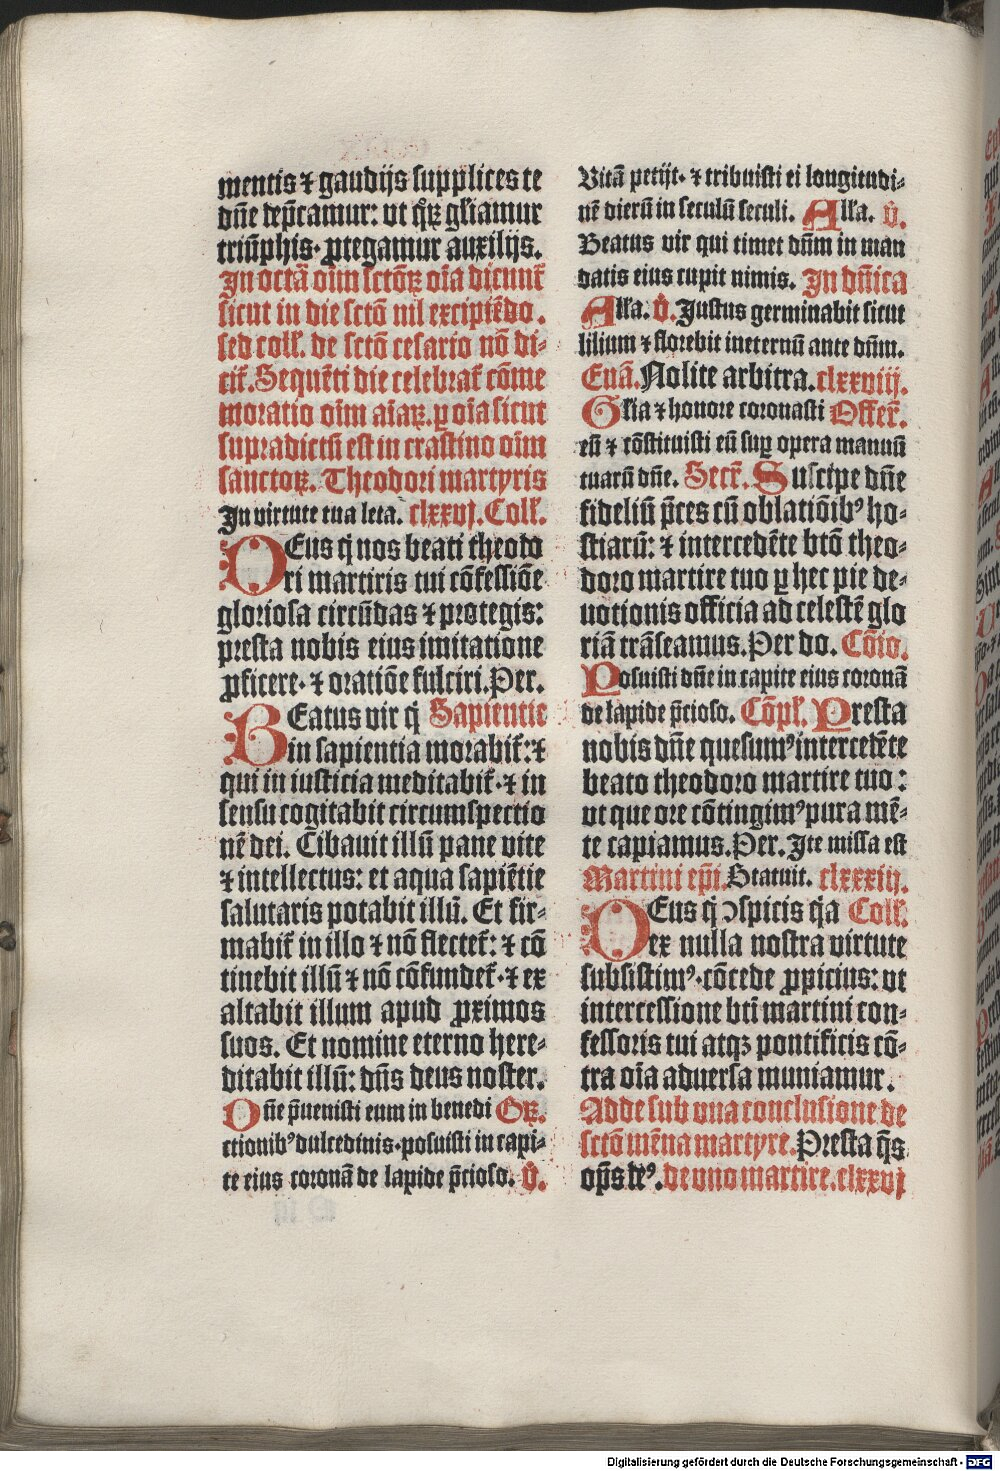 mentis ⁊ gaudijs supplices te
dn̄e dep̄camur: ut qͥꝝ gl̄iamur
triūphis· ꝓtegamur auxilijs.
In octā̄ oīm sctōꝝ oīa dicunt̄
sicut in die sctō nil excipiēdo.
sed coll̄. de sctō cesario nō di⸗
cit̄. Sequēti die celebrat̄ cōme
moratio oīm aīaꝝ. ꝑ oīa sicut
supradictū est in crastino oīm
sanctoꝝ. Theodori martyris
In virtute tua leta. clxxvj. Coll̄.
DEus qͥ nos beati theodo
ri martiris tui cōfessiōe
gloriosa circūdas ⁊ protegis:
presta nobis eius imitatione
ꝓficere· ⁊ oratiōe fulciri. Per.
BEatus vir qͥ Sapientie
in sapientia morabit̄: ⁊
qui in iusticia meditabit̄· ⁊ in
sensu cogitabit circumspectio
nē dei. Cibauit illū pane vite
⁊ intellectus: et aqua sapiētie
salutaris potabit illū. Et fir⸗
mabit̄ in illo ⁊ nō flectet̄: ⁊ cō
tinebit illū ⁊ nō cōfundet̄· ⁊ ex
altabit illum apud ꝓximos
suos. Et nomine eterno here⸗
ditabit illū: dn̄s deus noster.
Dn̄e p̄uenisti eum in benedi Gꝝ.
ctionibꝰ dulcedinis· posuisti in capi⸗
te eius coronā de lapide p̄cioso. V̄.
Vitā petijt· ⁊ tribuisti ei longitudi⸗
nē dierū in seculū seculi. All̄a. V̄.
Beatus vir qui timet dn̄m in man
datis eius cupit nimis. In dn̄ica
All̄a. V̄. Justus germinabit sicut
lilium ⁊ florebit ineternū ante dn̄m.
Euā. Nolite arbitra. clxxviij.
Gl̄ia ⁊ honore coronasti Offer̄.
eū ⁊ cōstituisti eū suꝑ opera manuū
tuarū dn̄e. Secr̄. Suscipe dn̄e
fideliū p̄ces cū oblatiōibꝰ ho⸗
stiarū: ⁊ intercedēte btō theo⸗
doro martire tuo ꝑ hec pie de⸗
uotionis officia ad celestē glo
riā trāseamus. Per do. Cōio.
Posuisti dn̄e in capite eius coronā
de lapide p̄cioso. Cōpl̄. Presta
nobis dn̄e quesumꝰ intercedēte
beato theodoro martire tuo:
ut que ore cōtingimꝰ pura mē⸗
te capiamus. Per. Ite missa est
Martini ep̄i. Statuit. clxxxiij.
DEus qͥ ↄspicis qͥa Coll̄.
ex nulla nostra virtute
subsistimꝰ· cōcede ꝓpicius: ut
intercessione bt̄i martini con⸗
fessoris tui atqꝫ pontificis cō⸗
tra oīa aduersa muniamur.
Adde sub vna conclusione de
sctō mēna martyre. Presta q̄s
op̄s deꝰ. de vno martire. clxxvj
Digitalisierung gefördert durch die Deutsche Forschungsgemeinschaft - DFG